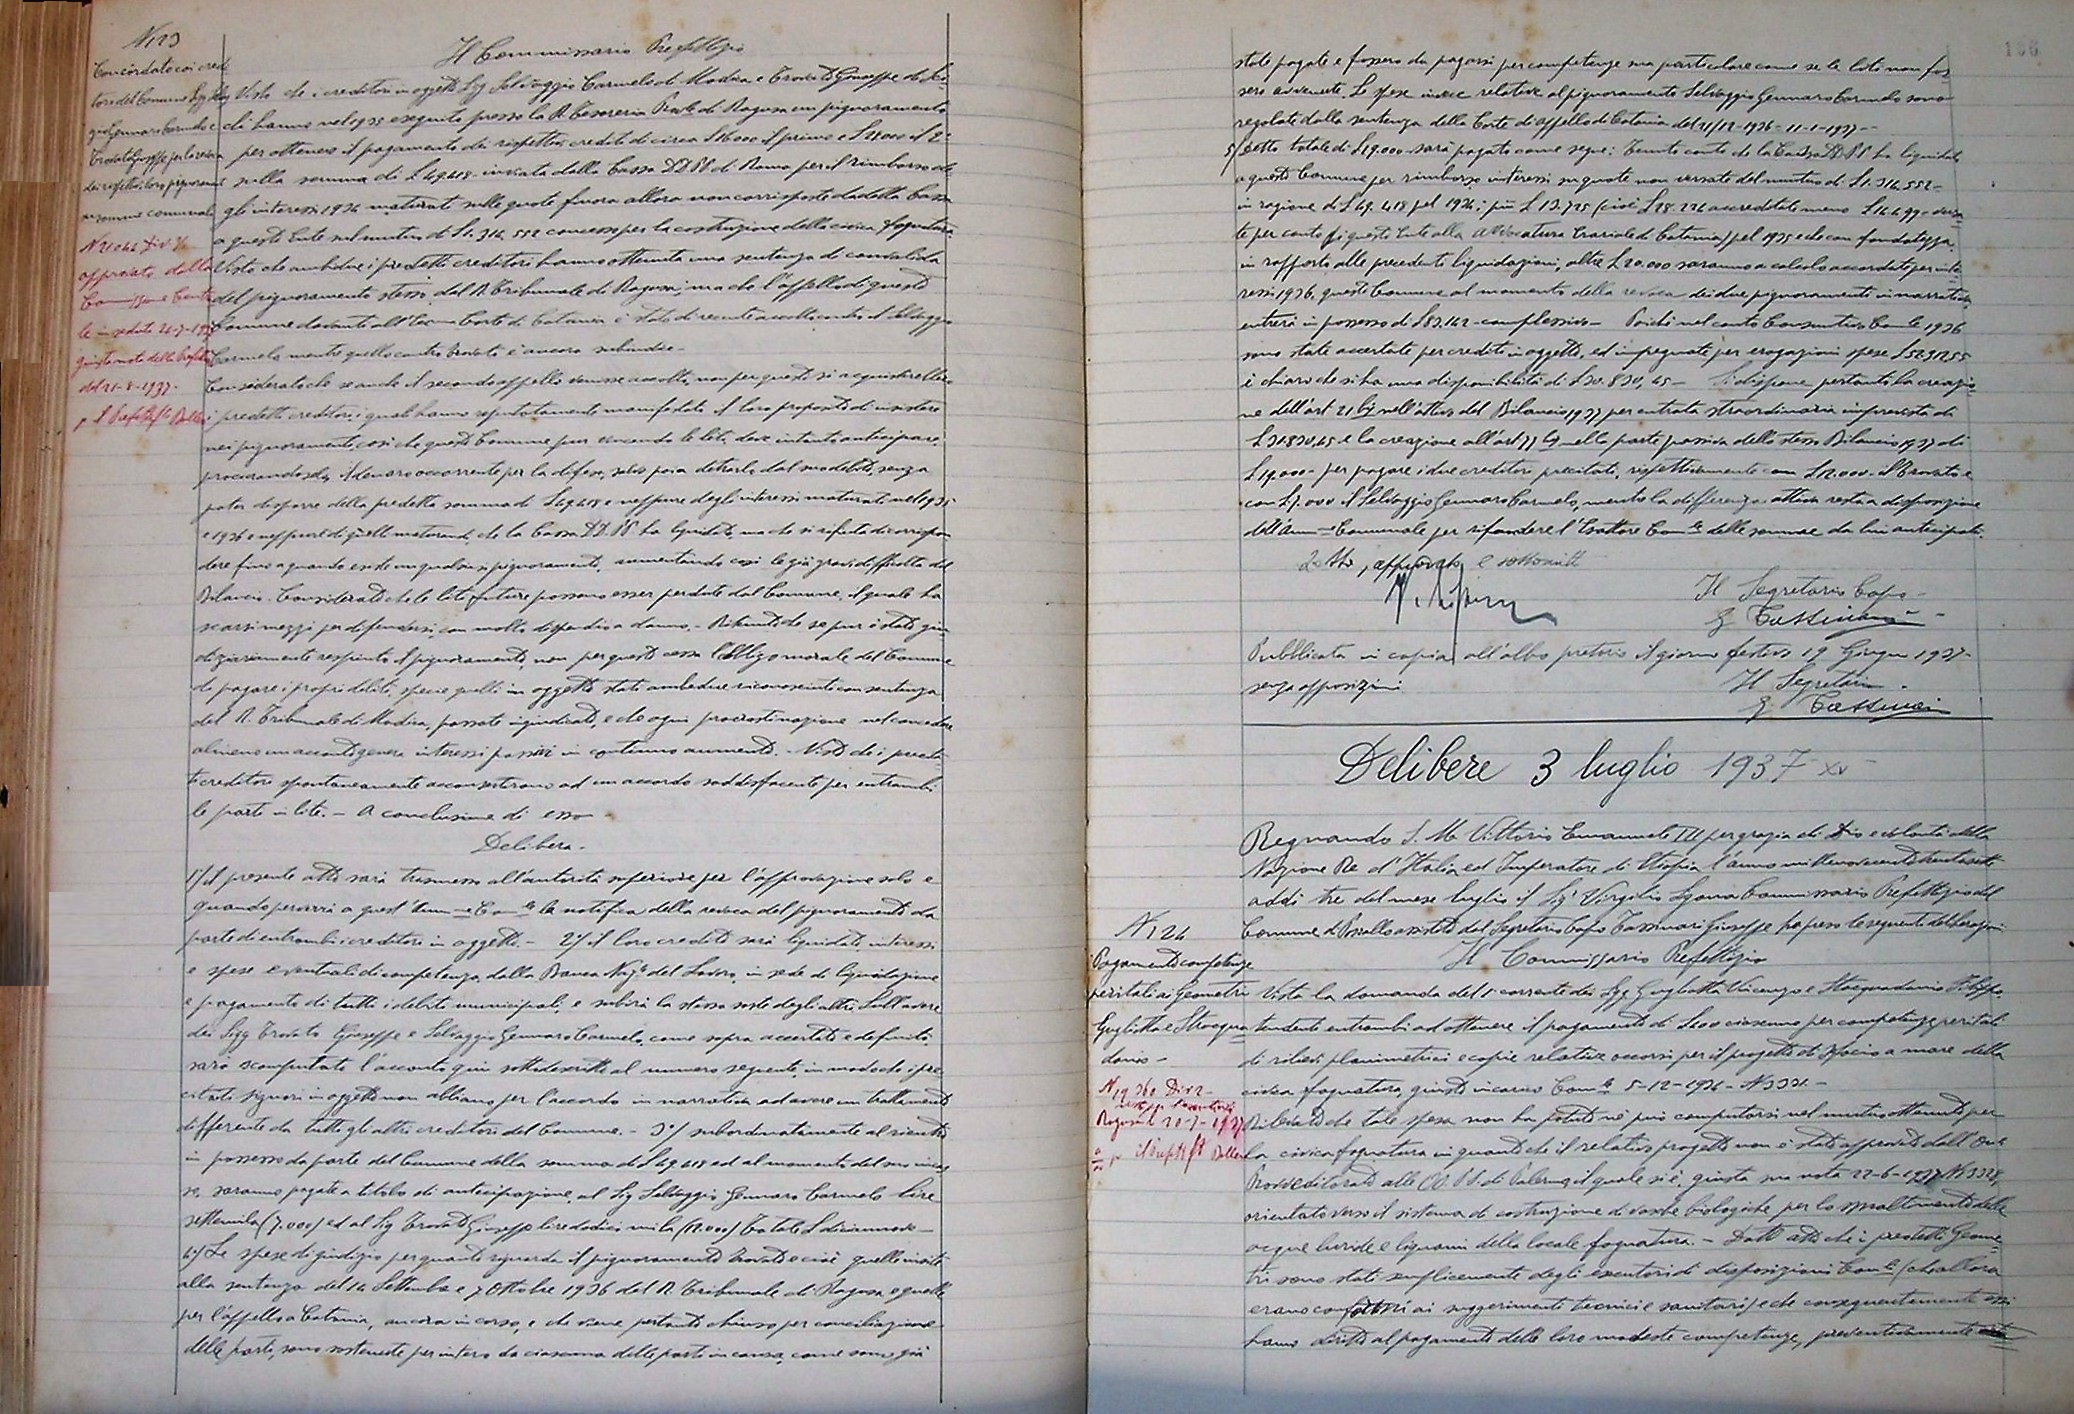 N 123
Concordato coi credi
tori del Comune Sigg Selvag
gio Gennaro Carmelo e
Trovato Giuseppe per la revoca
dei rispettivi loro pignoramenti
su somme comunali
N 21044 Div. 2
approvato dalla
Commissione Centra
le in seduta 24-7-1937
giusta nota della Prefett.
del 21-8-1937-
p. Il Prefetto
Il Commissario Prefettizio
Visto che i creditori in oggetto Sigg Selvaggio Carmelo di Modica e Trovato Giuseppe di
hanno nel 1935 eseguito presso la R. Tesoreria Prov.le di Ragusa un pignoramento
per ottenere il pagamento dei rispettivi crediti di circa £16000 il primo e £28000 il 2°
sulla somma di £ 49.418 - inviata dalla Cassa DD. PP. di Roma per il rimborso de
gli interessi 1934 maturati sulle quote finora allora non corrisposte da detta Cassa
a questo Ente sul mutuo di £1.314.552 concesso per la costruzione della civica fognatura.
Visto che ambedue i predetti creditori hanno ottenuta una sentenza di convalida
del pignoramento stesso dal R. Tribunale di Ragusa, ma che l'appello di questo
Comune davanti all'Ecc.ma Corte di Catania è stato di recente accolto contro il Selvaggio
Carmelo, mentre quello contro Trovato è ancora subiudice -
Considerato che se anche il secondo appello venisse accolto, non per questo si acquieterebbero
i predetti creditori, i quali hanno ripetutamente manifestato il loro proposito di insistere
nei pignoramenti, così che questo Comune pur vincendo le liti, deve intanto anticipare,
procurandosela, il denaro occorrente per la difesa, salvo poi a detrarlo dal suo debito, senza
poter disporre della predetta somma di £49.418 e neppure degli interessi maturati nel 1935
e 1936 e neppure di quelli maturandi, che la Cassa DD. PP. ha liquidati, ma che si rifiuta di corrispon
dere fino a quando esiste un qualsiasi pignoramento, aumentando così le già gravi difficoltà del
Bilancio. Considerato che le liti future possono esser perdute dal Comune, il quale ha
scarsi mezzi per difendersi, con molto dispendio e danno. - Ritenuto che se pur è stato giu
diziariamente respinto il pignoramento, non per questo cessa l'obbligo morale del Comune
di pagare i propri debiti, specie quelli in oggetto stati ambedue riconosciuti con sentenza
del R. Tribunale di Modica, passate in giudicato, e che ogni procrastinazione nel concedere
almeno un acconto genera interessi passivi in continuo aumento. - Visto che i predet
ti creditori spontaneamente acconsentirono ad un accordo soddisfacente per entrambi
le parti in lite. - A conclusione di esso
Delibera -
1°/ il presente atto sarà trasmesso all'autorità superiore per l'approvazione solo e
quando perverrà a quest'Amm.ne Com.le la notifica della revoca del pignoramento da
parte di entrambi i creditori in oggetto. - 2°/ il loro credito sarà liquidato, interessi
e spese eventuali di competenza, dalla Banca Naz.le del Lavoro, in sede di liquidazione
e pagamento di tutti i debiti municipali, e subirà la stessa sorte degli altri. Sull'avere
dei Sigg Trovato Giuseppe e Selvaggio Gennaro Carmelo, come sopra accertato e definito
sarà scomputato l'acconto qui sottodescritto al numero seguente, in modo che i pre
citati signori in oggetto non abbiano per l'accordo in narrativa ad avere un trattamento
differente da tutti gli altri creditori del Comune. - 3°/ subordinatamente al rientro
in possesso da parte del Comune della somma di £49.418 ed al momento del suo incas
so, saranno pagate a titolo di anticipazione, al Sig Selvaggio Gennaro Carmelo lire
settemila (7.000) ed al Sig Trovato Giuseppe lire dodicimila (12.000) Totale £ diciannove-
4°/ Le spese di giudizio per quanto riguarda il pignoramento Trovato e cioè quelle insite
alla sentenza del 14 Settembre e 7 Ottobre 1936 del R. Tribunale di Ragusa e quelle
per l'appello a Catania, ancora in corso, e che viene pertanto chiuso per conciliazione
delle parti, sono sostenute per intero da ciascuna delle parti in causa, come sono già
state pagate e fossero da pagarsi per competenze sua particolare come se le liti non fos
sero avvenute. Le spese invece relative al pignoramento Selvaggio Gennaro Carmelo sono
regolate dalla sentenza della Corte di appello di Catania del 21/12-1936-11-1-1937--
5/ detto totale di £19.000 sarà pagato come segue: Tenuto conto che la Cassa DD. PP. ha liquidato
a questo Comune per rimborso interessi su quote non versate del mutuo di £1.314.552-
in ragione di £49.418 pel 1934; più £13.725 (cioè £28.224 accreditate meno £14.499 devolu
te per conto di questo Ente alla Avvocatura Erariale di Catania) pel 1935 e che con fondatezza,
in rapporto alle precedenti liquidazioni, altre £20.000 saranno a calcolo accordate per inte
ressi 1936, questo Comune al momento della revoca dei due pignoramenti in narrativa,
entrerà in possesso di £83.142 - complessive - Poichè nel conto Consuntivo Com.le 1936
sono state accertate per crediti in oggetto, ed impegnate per erogazioni spese £52.311,55
è chiaro che si ha una disponibilità di £30.830,45 - Si dispone pertanto la creazio
ne dell'art 21 bis nell'attivo del Bilancio 1937 per entrata straordinaria imprevista di
£30.830,45 e la creazione all'art 77 bis nella parte passiva dello stesso Bilancio 1937 di
£19.000 - per pagare i due creditori precitati, rispettivamente con £12.000 - il Trovato e
con £7.000 il Selvaggio Gennaro Carmelo, mentre la differenza attiva resta a disposizione
dell'Amm.ne Comunale per rifondere l'Esattore Com.le delle somme da lui anticipate.
Letto, approvato e sottoscritto
Il Segretario Capo -
G Tassinari
Pubblicata in copia all'albo pretorio il giorno festivo 19 Giugno 1937-
senza opposizioni
Il Segretario -
G Tassinari
Delibere 3 luglio 1937 XV
Regnando S. M. Vittorio Emanuele III per grazia di Dio e volontà della
Nazione Re d'Italia ed Imperatore di Etiopia l'anno millenovecentotrentasette
addì tre del mese luglio il Sig Virgilio Commissario Prefettizio del
Comune di Pozzallo assistito dal Segretario Capo Tassinari Giuseppe ha preso le seguenti deliberazioni
N 124
Pagamento competenze
peritali ai Geometri
Guglietta e Stracqua
danio -
N 19360 Div 2-
Ragusa li 20-7-1937
p. il Prefetto
Il Commissario Prefettizio
Vista la domanda del 1° corrente dei Sigg Guglietta Vincenzo e Stracquadanio Filippo,
tendente entrambi ad ottenere il pagamento di £200 ciascuno per competenze peritali
di rilievi planimetrici e copie relative occorsi per il progetto di sfocio a mare della
civica fognatura, giusto incarico Com.le 5-12-1934-N3331-
Rilevato che tale spesa non ha potuto nè può computarsi nel mutuo ottenuto per
la civica fognatura in quanto che il relativo progetto non è stato approvato dall'On.le
Provveditorato alle OO. PP. di Palermo il quale si è, giusta sua nota 22-6-1937 N3328,
orientato verso il sistema di costruzione di vasche biologiche per lo smaltimento delle
acque luride e liquami della locale fognatura. - Dato atto che i predetti Geome
tri sono stati semplicemente degli esecutori di disposizioni Com.li (che allora
erano conformi ai suggerimenti tecnici e sanitari) e che conseguentemente essi
hanno diritto al pagamento delle loro modeste competenze, preventivamente